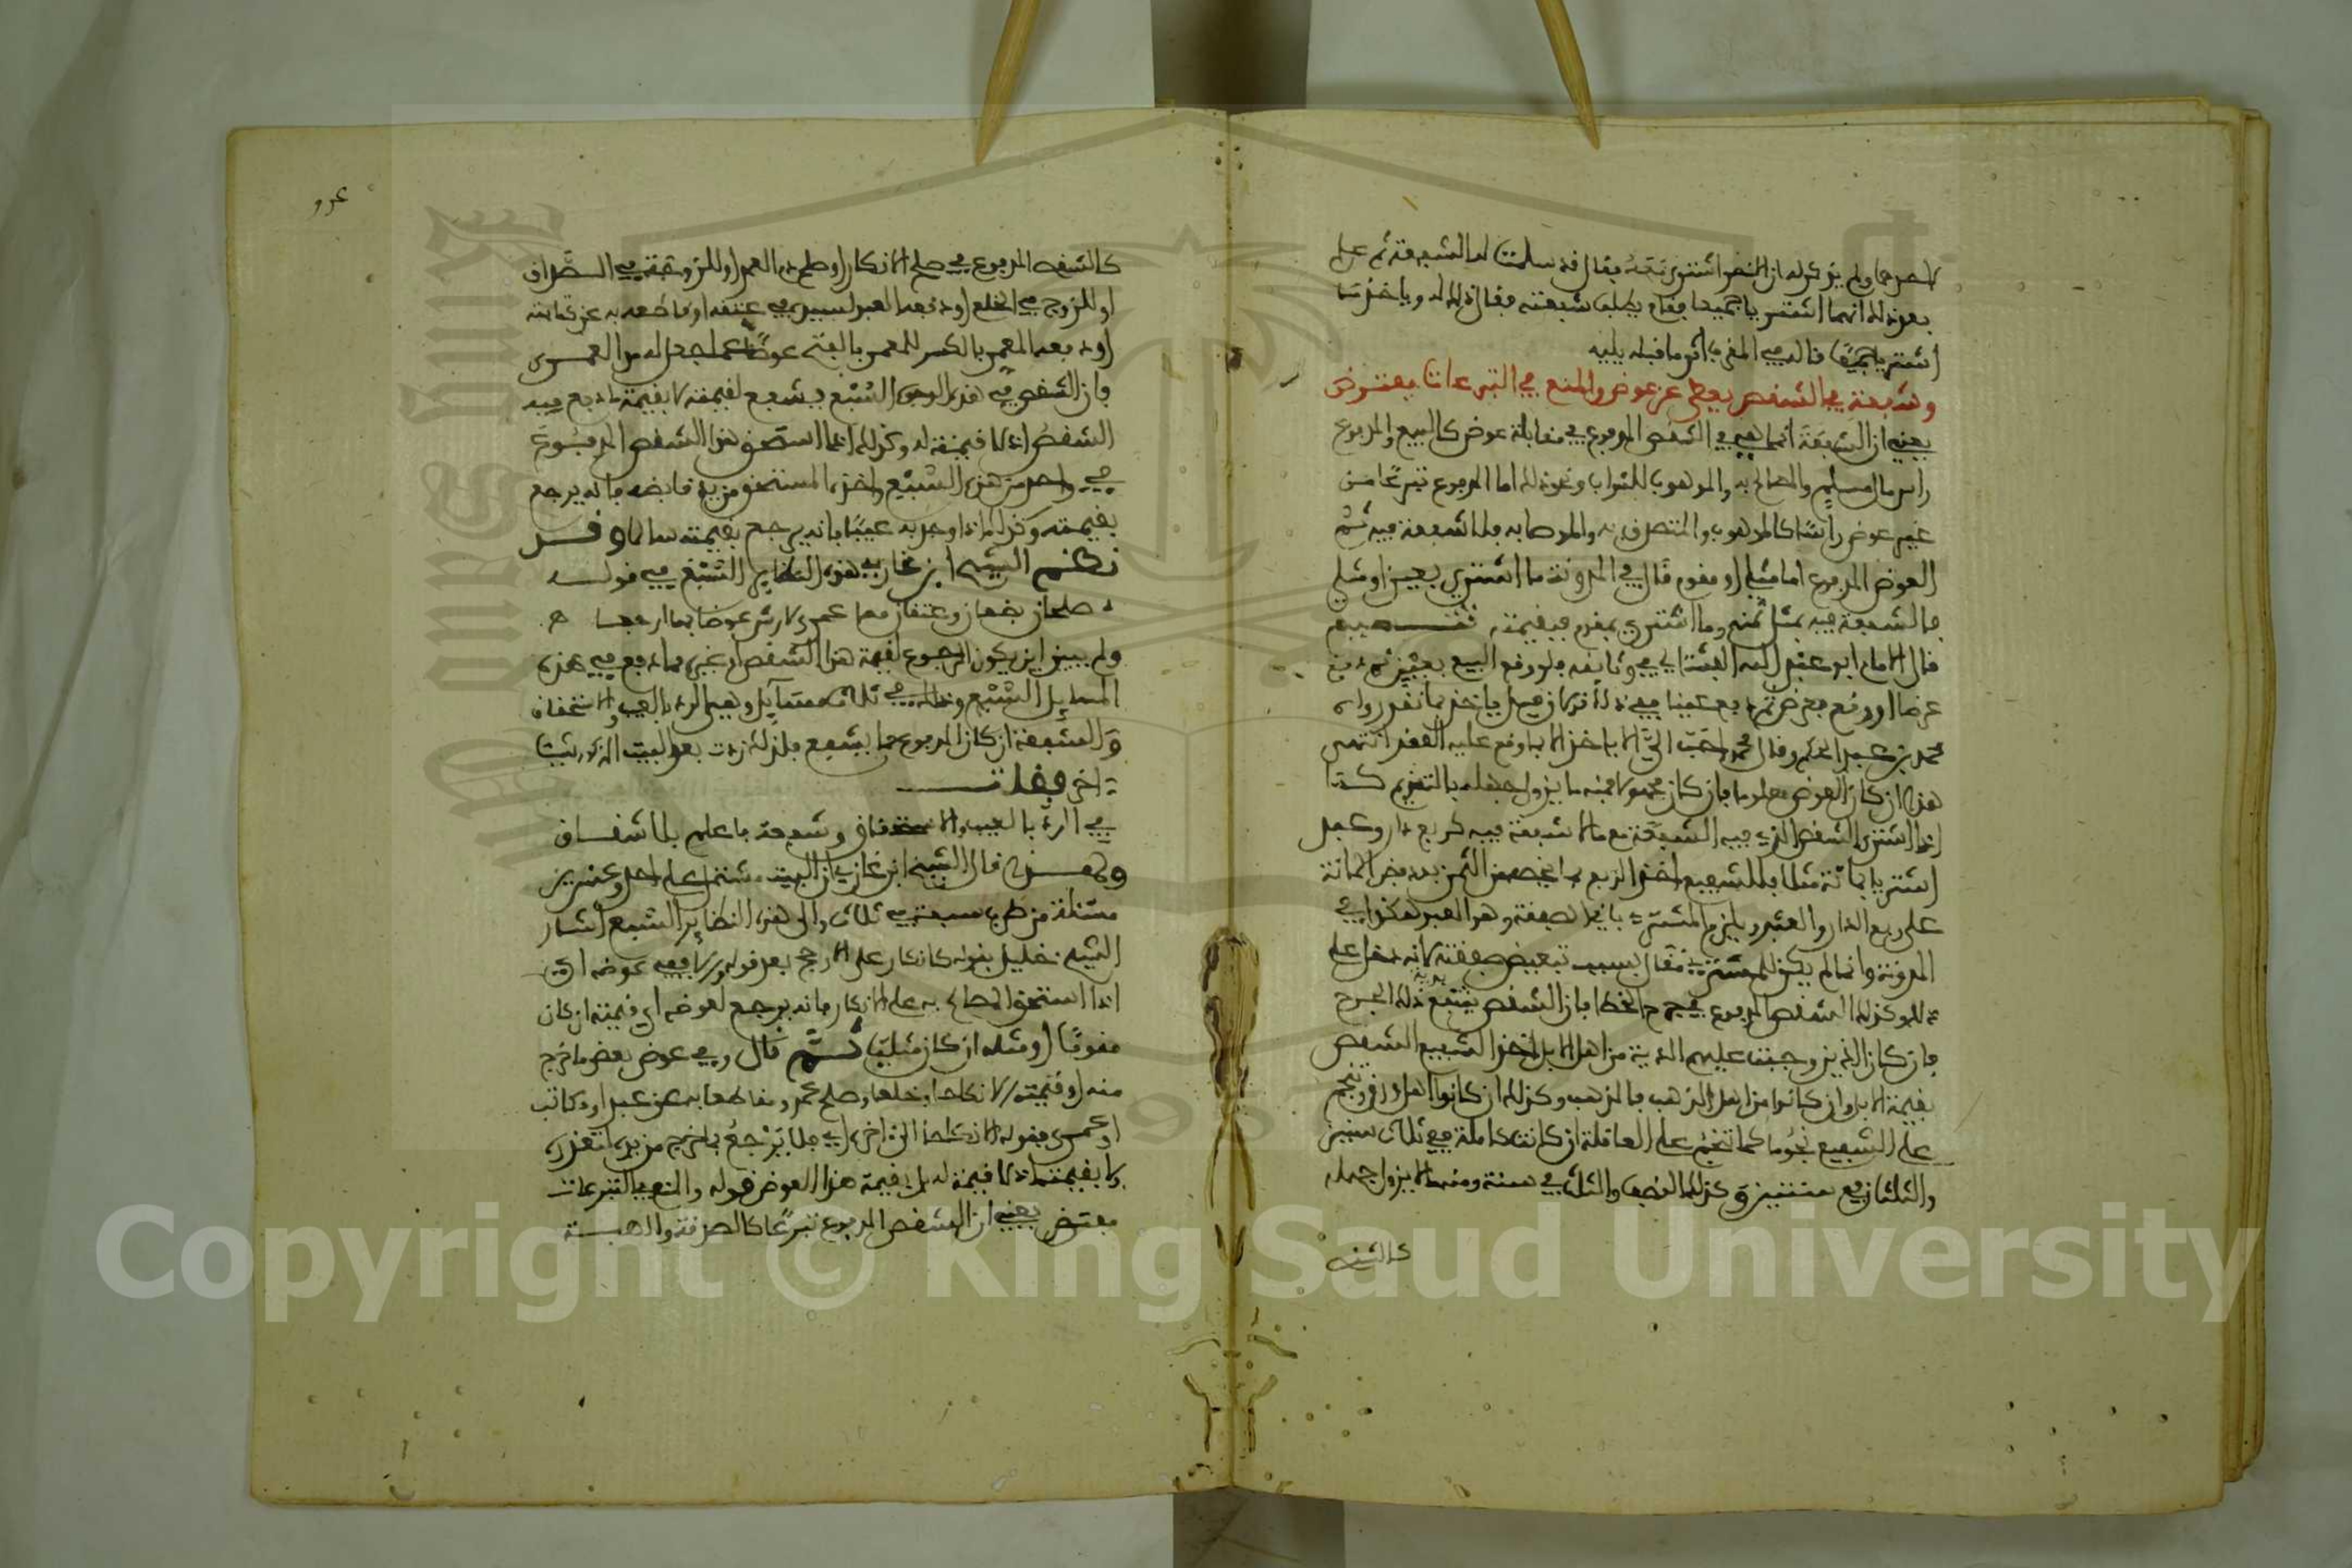 لاحدهما ولم يذكر له ان الآخر اشترى معه فقال قد سلمت له الشفعة ثم علم
بعد ذلك انهما اشترياه جميعا فقام يطلب شفعته فقال ذلك له وياخذ ما
اشترياه جميعا قاله في
وشفعة في الشقص يعطى عن عوض والمنع في التبرعات مفترض
يعني ان الشفعة انما هي في الشقص المدفوع في مقابلة عوض كالبيع والمدفوع
راس مال سلم والمصالح به والموهوب للثواب ونحو ذلك اما المدفوع تبرعا من
غير عوض راسا كالموهوب والمتصدق به والموصا به فلا شفعة فيه ثم
العوض المدفوع اما مثلي او مقوم قال في المدونة ما اشتري بعين او مثلي
فالشفعة فيه بمثل ثمنه وما اشتري بمقوم فبقيمته تتميم
قال الامام ابو عبد الله الفشتالي في وثايقه ولو وقع البيع بعين ثم دفع
عرضا او وقع بعرض ثم دفع عينا ففي ذلك فيل ياخذ بما نقد رواه
محمد بن عبد الحكم وقال محمد احب الي الا ياخذ الا بما وقع عليه العقد انتهى
هذا ان كان العوض معلوما فان كان مجهولا فمنه ما يزول جهله بالتقويم كما
اذا اشترى الشقص الذي فيه الشفعة مع ما لا شفعة فيه كربع دار وعبد
اشتريا بمائة مثلا فللشفيع اخذ الربع بما يخصه من الثمن بعد فض المائة
على ربع الدار والعبد ويلزم المشتري باقي الصفقة وهو العبد هكذا في
المدونة وانما لم يكن للمشتري مقال بسبب تبعيض صفقته لانه دخل على
ذلك وكذلك الشقص المدفوع في جرح الخطا فان الشقص يشفع بدية ذلك الجرح
فان كان الذين وجبت عليهم الدية من اهل الابل اخذ الشفيع الشقص
بقيمة الابل وان كانوا من اهل الذهب فالذهب وكذلك ان كانوا اهل ورق وتنجم
على الشفيع نجوما كما تنجم على العاقلة ان كانت كاملة ففي ثلاث سنين
والثلثان في سنتين وكذلك النصف والثلث في سنة ومنه ما لا يزول جهله
كالشقص
كالشقص المدفوع في صلح الانكار او صلح دم العمد او للزوجة في الصداق
او للزوج في الخلع او دفعه العبد لسيده في عتقه او قاطعه به عن كتابته
او دفعه المعمر بالكسر للمعمر بالفتح عوضا عما جعل له من العمرى
فان الشقص في هذه الوجوه السبع يشفع لقيمته لا بقيمة ما دفع فيه
الشقص اذ لا قيمة له وكذلك اذا استحق هذا الشقص المدفوع
في واحد من هذه السبع واخذه المستحق من يد قابضه فانه يرجع
بقيمته وكذلك اذا وجد به عيبا فانه يرجع بقيمته سالما وقد
نظم الشيخ ابن غازي هذه النظاير السبع في قوله
صلحان بضعان وعتقان معا عمرى لارش عوض بها ارجعا
ولم يبين اين يكون الرجوع لقيمة هذا الشقص او غيره مما دفع في هذه
المسايل السبع وذلك في ثلاث مسايل وهي الرد بالعيب والاستحقاق
والشفعة ان كان المدفوع مما يشفع فلذلك زدت بعد البيت المذكور بيتا
اخر فقلت
في الرد بالعيب والاستحقاق وشفعة فاعلم بلا شقاق
ولهذا قال الشيخ ابن غازي ان البيت مشتمل على احد وعشرين
مسئلة من ضرب سبعة في ثلاث والى هذه النظاير السبع اشار
الشيخ خليل بقوله كانكار على الارجح بعد قوله والا ففي عوضه اي
اذا استحق المصالح به على الانكار فانه يرجع لعوضه اي قيمته ان كان
مقوما او مثله ان كان مثليا ثم قال وفي عوض بعوض ما خرج
منه او قيمته الا نكاحا وخلعا وصلح عمد ومقاطعا به عن عبد او مكاتب
او عمرى فقوله الا نكاحا الى اخره اي فلا يرجع بما خرج من يده لتعذره
ولا بقيمته اذ لا قيمة له بل بقيمة هذا العوض قوله والمنع في التبرعات
مفترض يعني ان الشقص المدفوع تبرعا كالصدقة والهبة